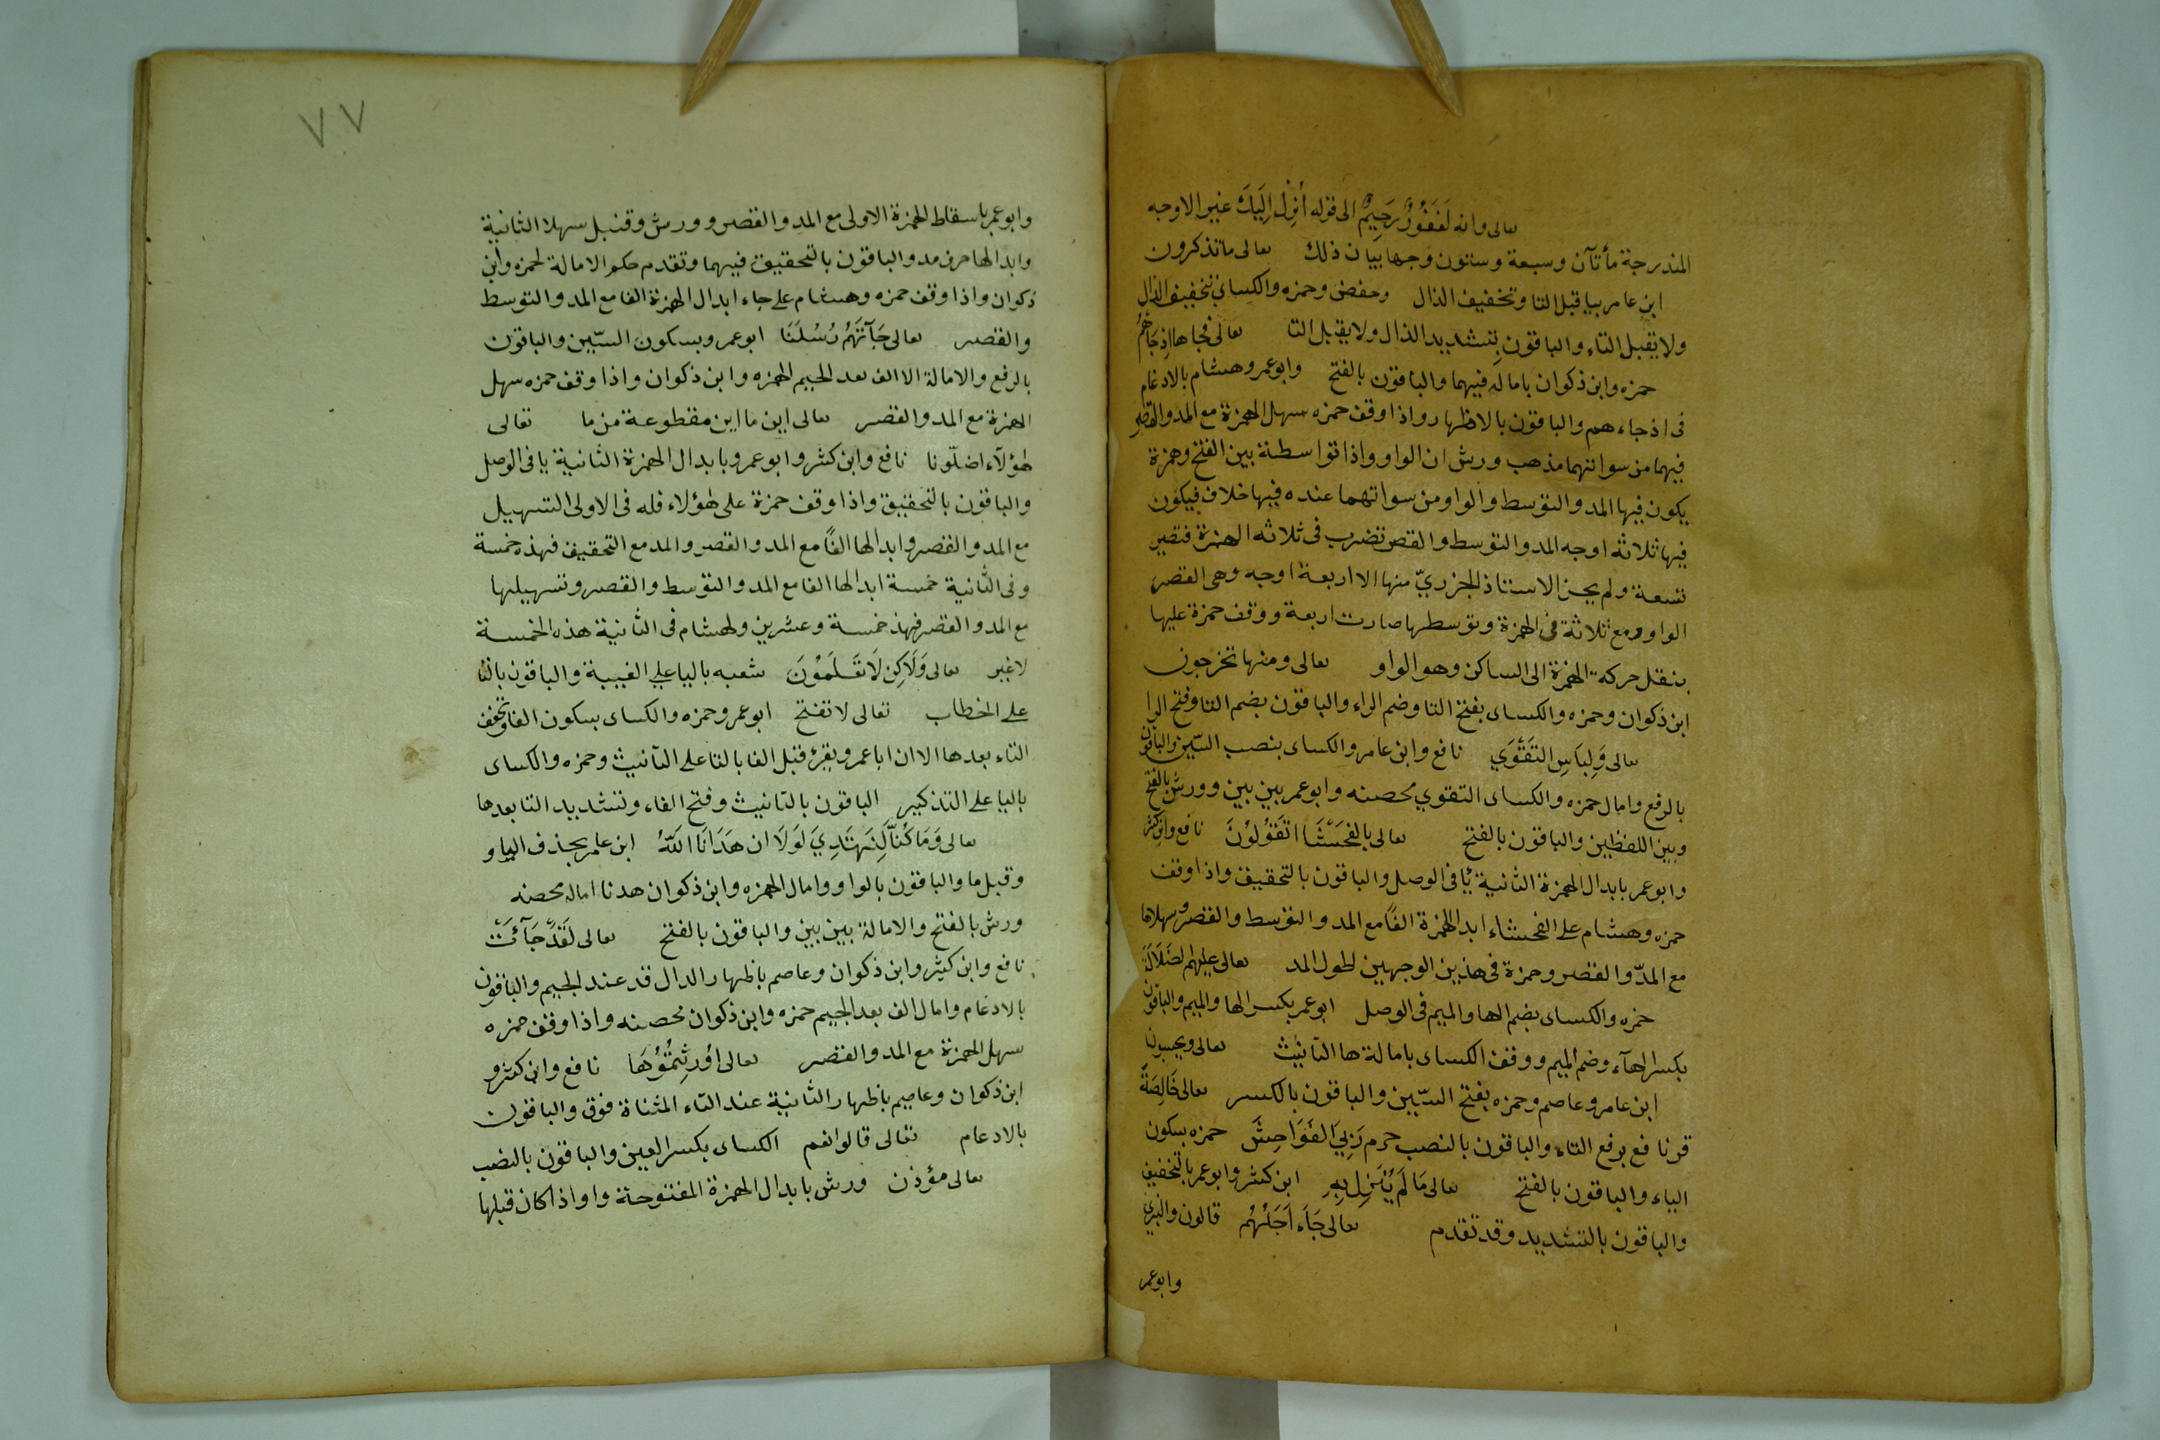 تعالى وانه لَغَفُورٌ رَحِيمٌ الى قوله أُنزِلَ اِلَيكَ غير الاوجه
المندرجة مأتآن وسبعة وستون وجها بيان ذلك تعالى ما تذكرون
ابن عامر بيا قبل التا وتخفيف الذال وحفص وحمزه والكساي بتخفيف الذال
ولا يقبل التاء والباقون بتشديد الذال ولا يقبل التا تعالى فجاها اذ جَاءهُمْ
حمزه وابن ذكوان باماله فيهما والباقون بالفتح وابو عمر وهشام بالادغام
فى اذ جاءهم والباقون بالاظهار واذا وقف حمزه سهل الهمزة مع المد والقصر
فيهما من سواتهما مذهب ورش ان الواو واذا توا سطنة بين الفتح وهمزة
يكون فيها المد والتوسط والواو من سواتهما عنده فيها خلاف فيكون
فيها ثلاثه اوجه المد والتوسط والقصر تضرب فى ثلاثه الهمزة فتصير
تسعة ولم يجز الاستاذ الجزريّ منها الا اربعة اوجه وهى القصر
الواو مع ثلاثة فى الهمزة وتوسطها صارت اربعة ووقف حمزة عليها
بنقل حركة الهمزة الى الساكن وهو الواو تعالى ومنها تخرجون
ابن ذكوان وحمزه والكساى بفتح التا وضم الراء والباقون بضم التا وفتح الرا
تعالى وَلِبَاسِ التَقْوَي نافع وابن عامر والكساى بنصب السّين والباقون
بالرفع وامال حمزه والكساى التقوي محصنه وابو عمر بين بين وورش بالفتح
وبين اللفظين والباقون بالفتح تعالى بالفَحَشَا اتَقُولُونَ نافع وابن كثر
وابو عمر بابدال الهمزة الثانية يًا فى الوصل والباقون بالتحقيق واذا وقف
حمزه وهشام على الفحشاء ابد الهمزة الفًا مع المد والتوسط والقصر وسهلاها
مع المدّ والقصر وحمزة فى هذين الوجهين لطول المد تعالى عليهم لضَلَالَةَ
حمزه والكساى بضم الها والميم فى الوصل ابو عمر بكسر الها والميم والباقون
بكسر الهآء وضم الميم ووقف الكساى بامالة ها التانيث تعالى ويحسبون
ابن عامر وعاصم وحمزه بفتح السّين والباقون بالكسر تعالى خَالِصَةً
قرنا فع برفع التاء والباقون بالنصب حرم رَبِيَ الفَوَاحِشَ حمزه بسكون
الياء والباقون بالفتح تعالى مَا لَم يُنَزِل بِهِ ابن كثر وابو عمر بالتخفيف
والباقون بالتشديد وقد تقدم تعالى جَاَء اَجَلُهُم قالون والبزى
وابو عمر
٧٧
وابو عمر باسقاط الهمزة الاولى مع المد والقصر وورش وقنبل سهلا الثانية
وابدالها حرف مد والباقون بالتحقيق فيهما وتقدم حكم الامالة لحمزه وابن
ذكوان واذا وقف حمزه وهشام على جاء ابدال الهمزة الفا مع المد والتوسط
والقصر تعالى جَآتَهُمْ رُسُلنَا ابو عمرو بسكون السّين والباقون
بالرفع والامالة الا الف بعد الجيم لحمزه وابن ذكوان واذا وقف حمزه سهل
الهمزة مع المد والقصر تعالى اين ما اين مقطوعة من ما تعالى
هؤلآء اضلّونا نافع وابن كثر وابو عمرو بابدال الهمزة الثانية يا فى الوصل
والباقون بالتحقيق واذا وقف حمزة على هؤلاء فله فى الاولى التسهيل
مع المد والقصر وابدالها الفًا مع المد والقصر والمد مع التحقيق فهذه خمسة
وفى الثانية خمسة ابدالها الفا مع المد والتوسط والقصر وتسهيلها
مع المد والقصر فهذ خمسة وعشرين ولهشام فى الثانية هذه الخمسة
لا غير تعالى وَلَاكِن لَا تَعلَمُونَ شعبه باليا علي الغيبة والباقون بالتا
على الخطاب تعالى لا تفتح ابو عمر وحمزه والكساى بسكون الفا وتخفف
التاء بعدها الا ان ابا عمرو يقرئ قبل الفا بالتا على التآنيث وحمزه والكساى
باليا على التذكير الباقون بالتانيث وفتح الفاء وتشديد التا بعدها
تعالى وَمَا كُنَّا لِنَهتَدِيَ لَولَا ان هَدَانَا اللّهُ ابن عامر بحذف الواو
وقبل ما والباقون بالواو وامال الحمزه وابن ذكوان هدنا اماله محصنه
ورش بالفتح والامالة بين بين والباقون بالفتح تعالى لَقَدْ جَآئَتْ
نافع وابن كثير وابن ذكوان وعاصم باظهار الدال قد عند الجيم والباقون
بالادغام وامال الف بعد الجيم حمزه وابن ذكوان محصنه واذا وقف حمزه
سهل الهمزة مع المد والقصر تعالى اوُرِثتُمُوُهَا نافع وابن كثر و
ابن ذكوان وعاصم باظهار الثانية عند التاء المثناة فوق والباقون
بالادعام تعالى قالوا نعم الكساى بكسر العين والباقون بالنصب
تعالى مؤذن ورش بابدال الهمزة المفتوحة واو اذا كان قبلها